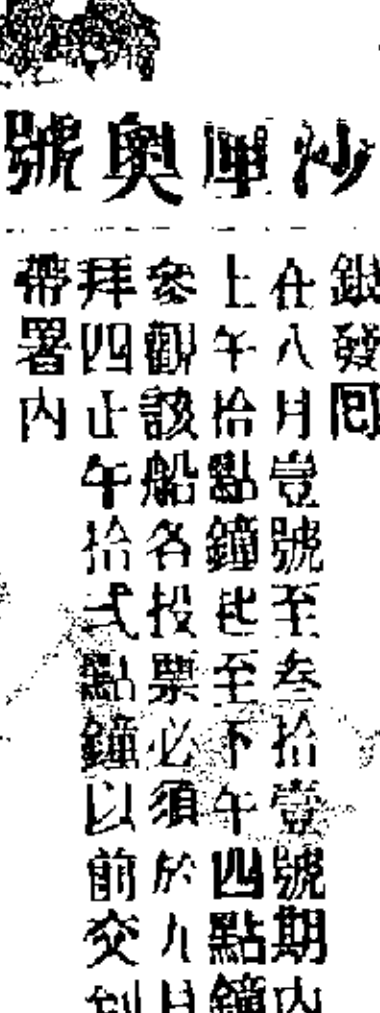 沙厘奥號
銀發囘
在八月壹號至叁拾壹號期內
上午拾點鐘起至下午四點鐘
參觀該船各投票必須於九月
拜四正午拾弍點鐘以前交到
帶署內